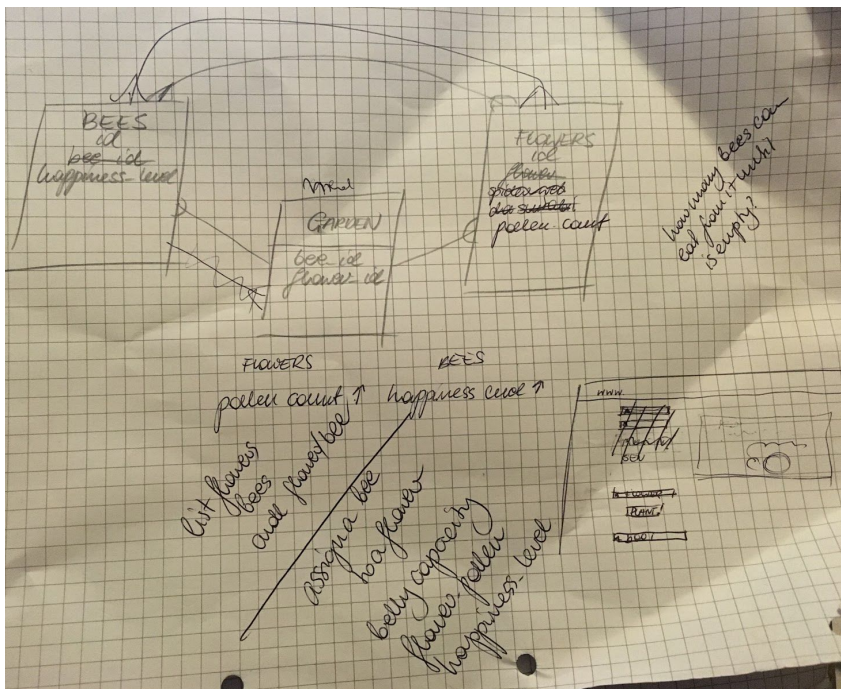 BEES
id
bee_id
happiness_level
GARDEN
bee_id
flower_id
FLOWERS
id
flower
pollen count
how many bees can
eat from it until
is empty?
FLOWERS
pollen count ↑
BEES
happiness level ↑
list flowers
bees
add flower/bee
assign a bee
to a flower
belly capacity
flower_pollen
happiness_level
www.
PLANT!